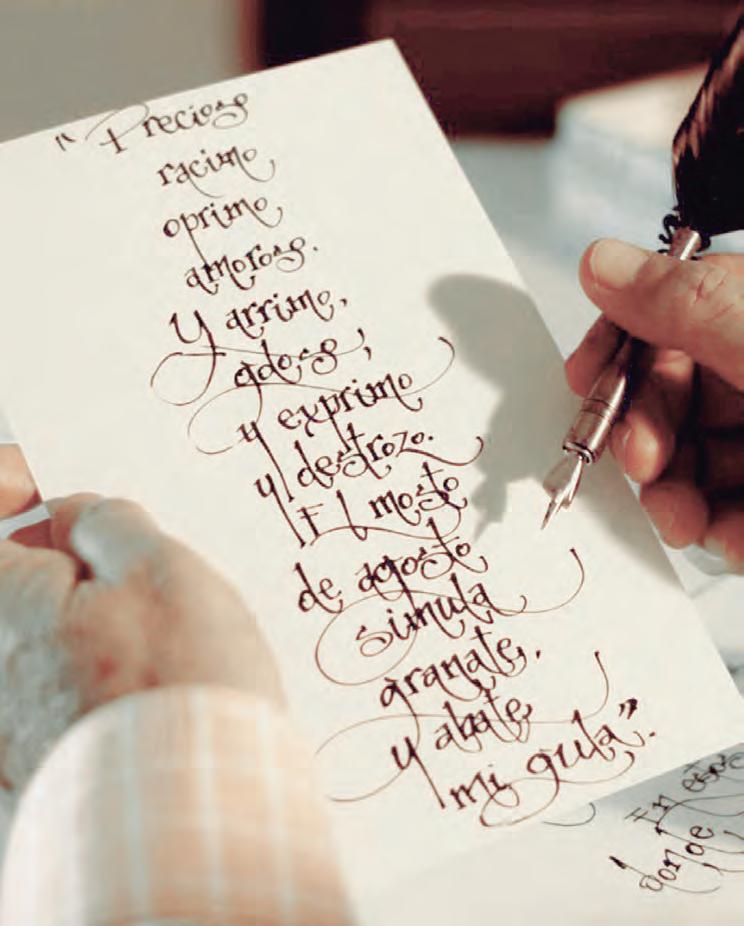 "Precioso
racimo,
oprimo,
amoroso.
Y arrimo,
adoso,
y exprimo
y destrozo.
El mosto
de agosto
simula
granate,
y abate
mi gula".
En este
donde